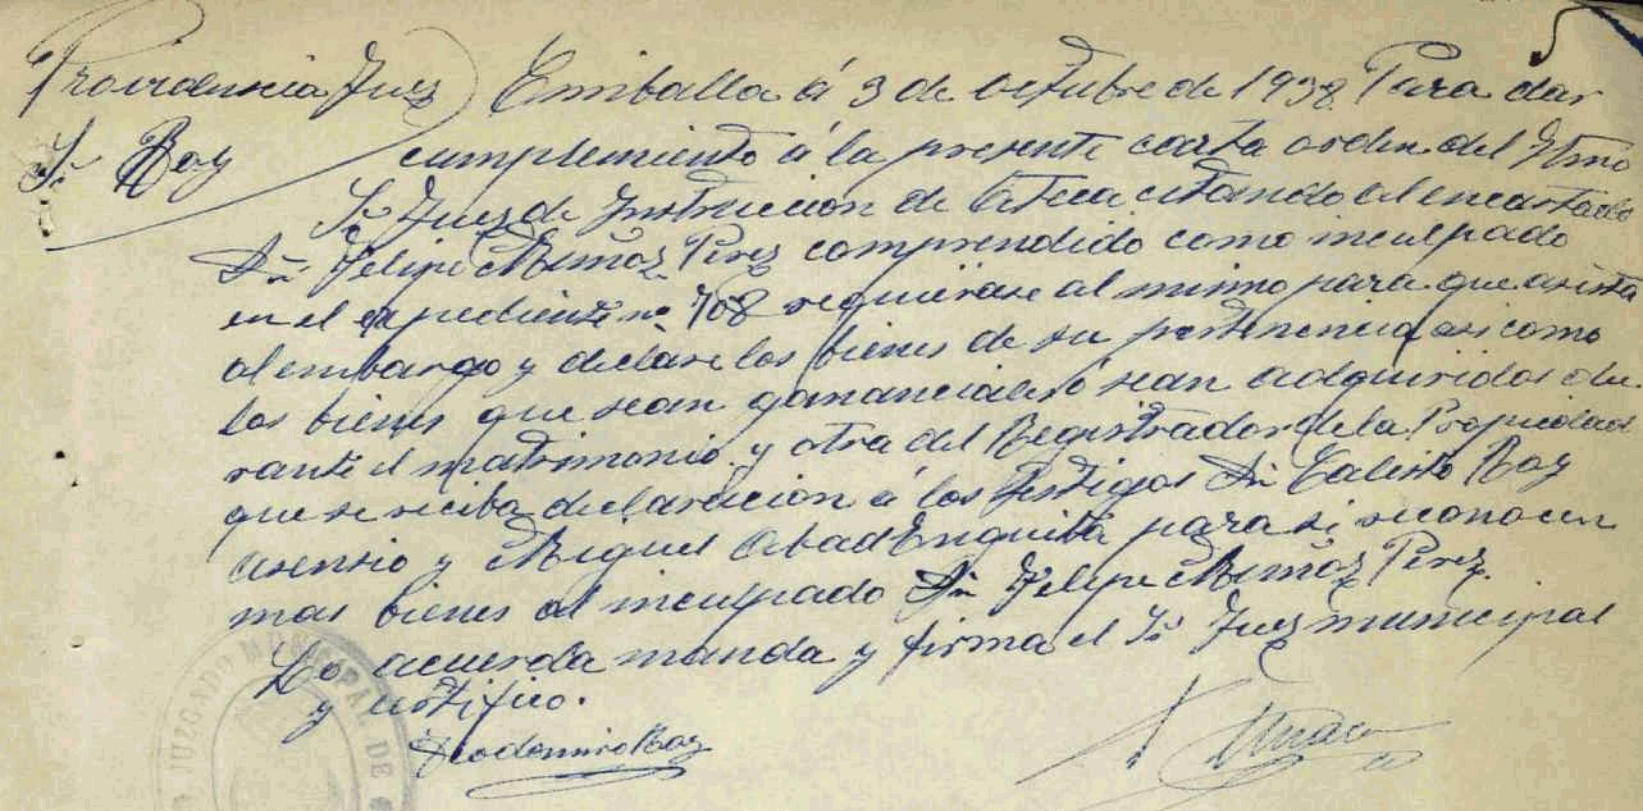 Providencia Juez) Cimballa á 3 de octubre de 1938 Para dar
Sr Roy cumplemiento á la presente carta orden del Iltmo
Sr Juez de Instruccion de Ateca citando al encartado
Dn Felipe Muñoz Perez comprendido como inculpado
en el expediente nº 708 requierase al mismo para que asista
al embargo y declare los bienes de su pertenencia asi como
los bienes que sean gananciales ó sean adquiridos du
rante el matrimonio y otra del Registrador de la Propiedad
que se reciba declaracion á los testigos Dn Calisto Roy
asensio y Miguel Abad Enguita para si reconocen
mas bienes al inculpado Dn Felipe Muñoz Perez.
Lo acuerda manda y firma el Sr Juez municipal
y certifico.
Teodomiro Roy
JUZGADO MUNICIPAL DE